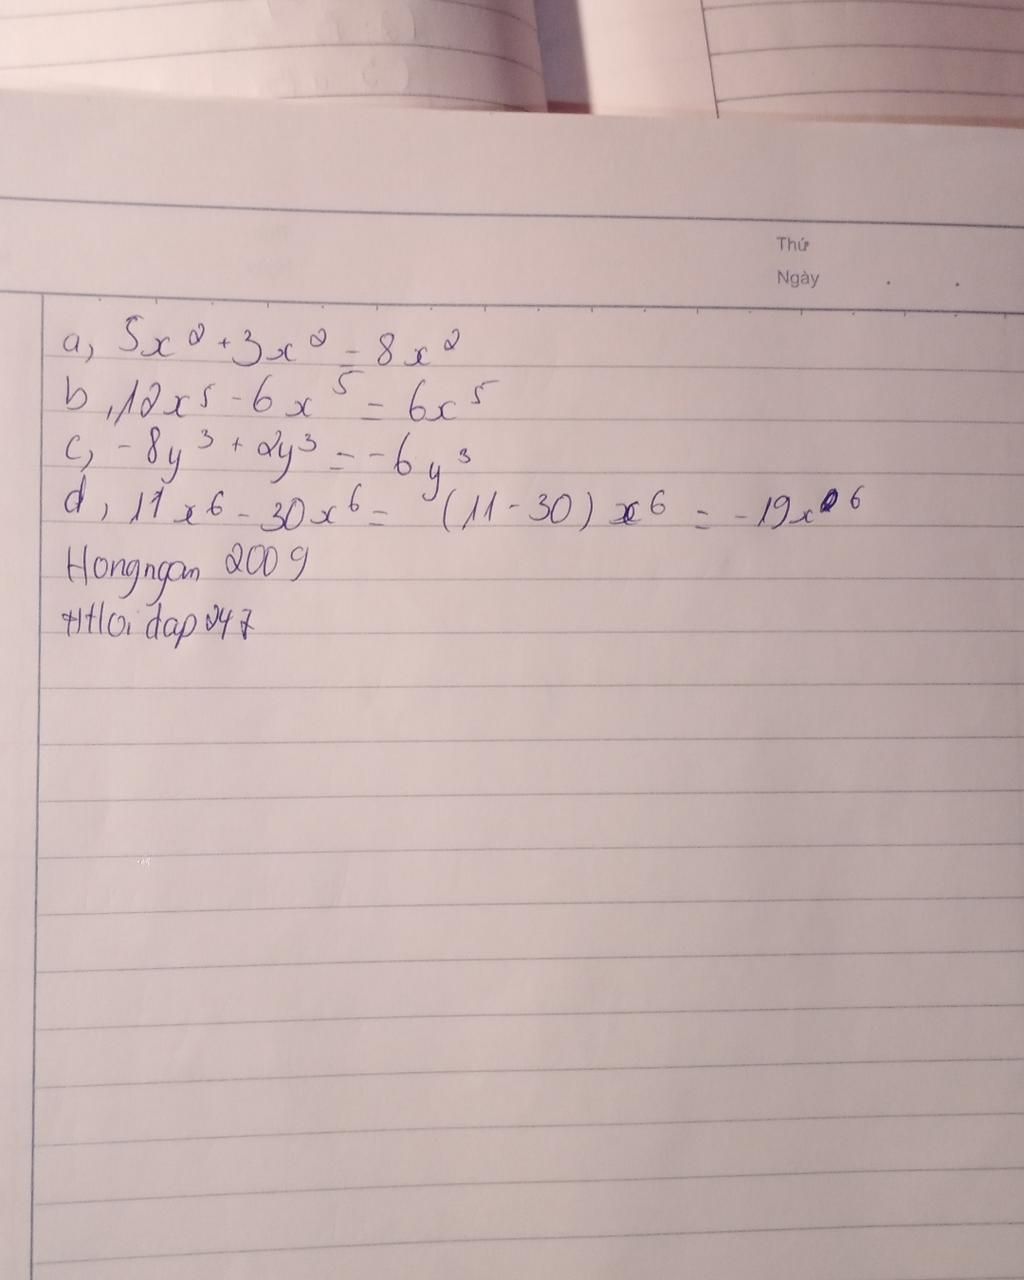 Thứ
Ngày . .
a, 5x² + 3x² = 8x²
b, 12x⁵ - 6x⁵ = 6x⁵
c, -8y³ + 2y³ = -6y³
d, 11x⁶ - 30x⁶ = (11 - 30) x⁶ = -19x⁶
Hongngan 2009
#Hoi dap 247